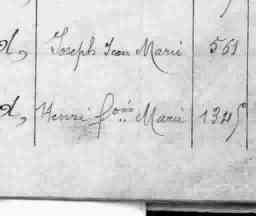 d, Joseph Jean Marie 561
d, Henri fois Marie 1345